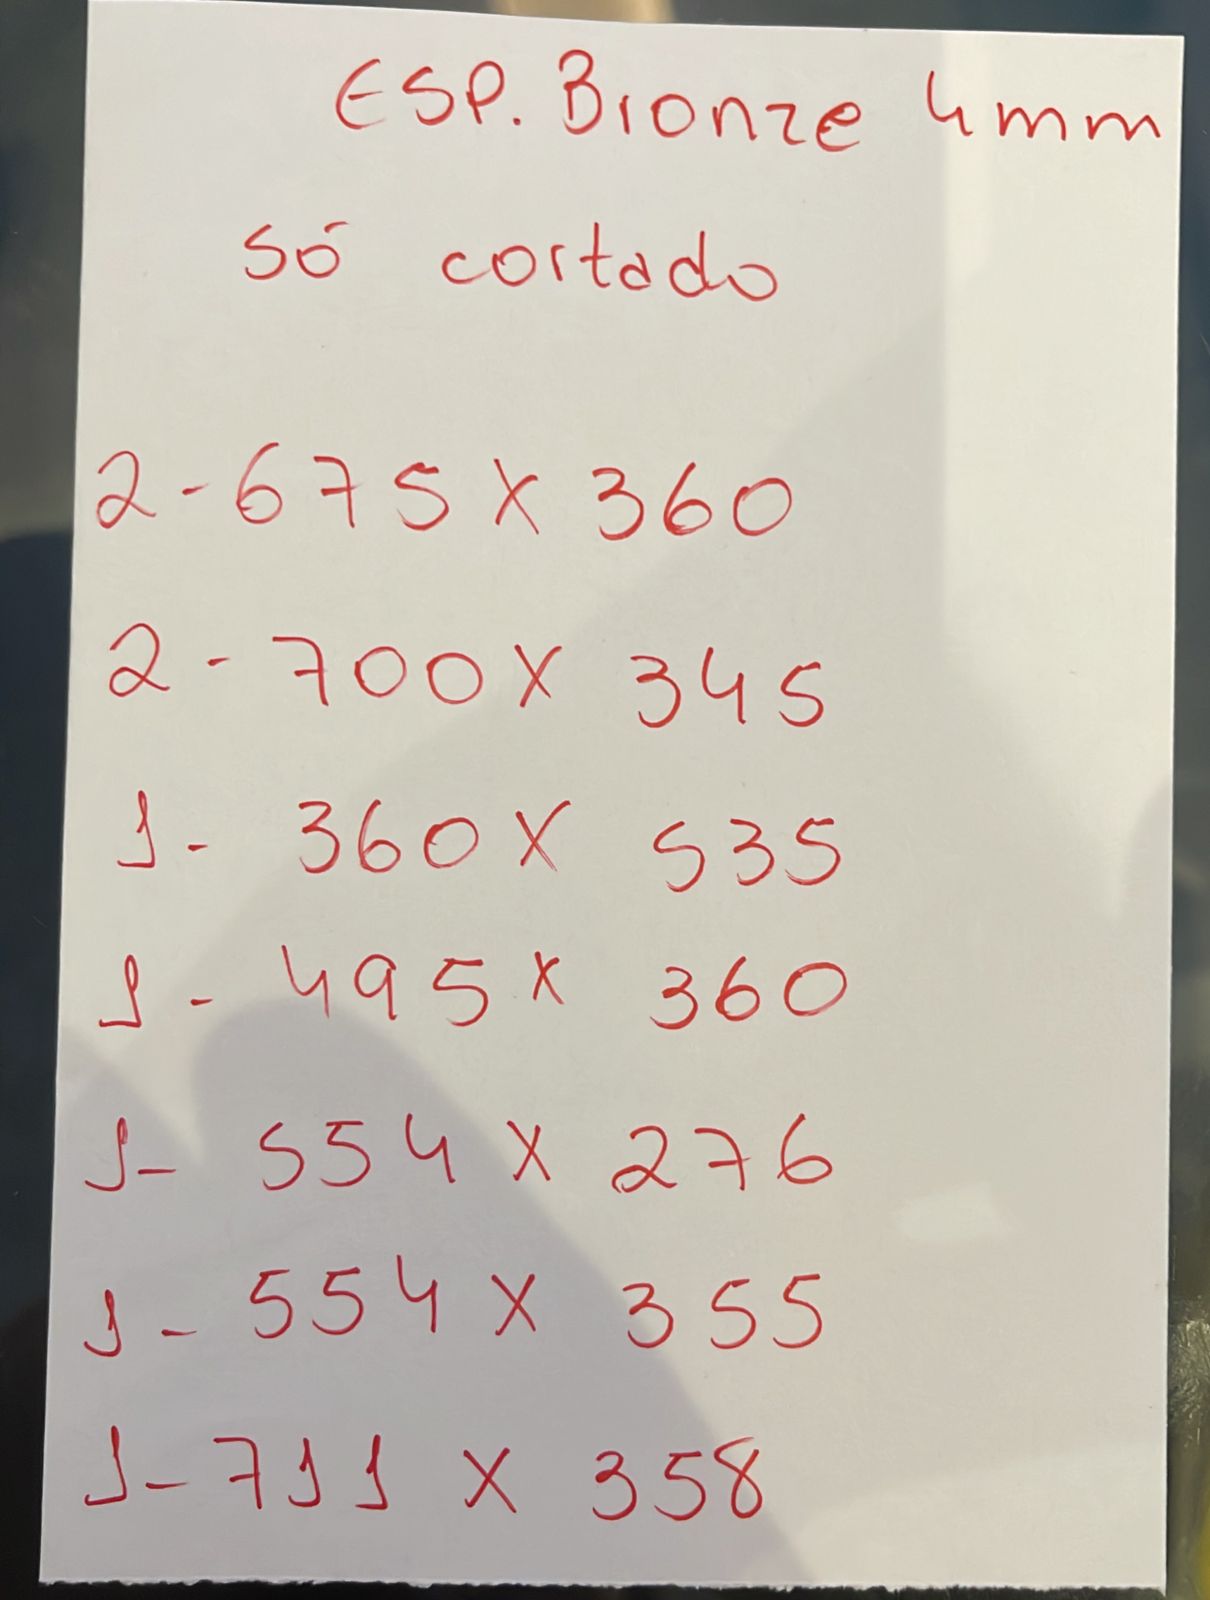 ESP. Bronze 4mm
só cortado
2-675 X 360
2 - 700 X 345
1- 360 X 535
1- 495 x 360
1- 554 X 276
1- 554 X 355
1-711 X 358